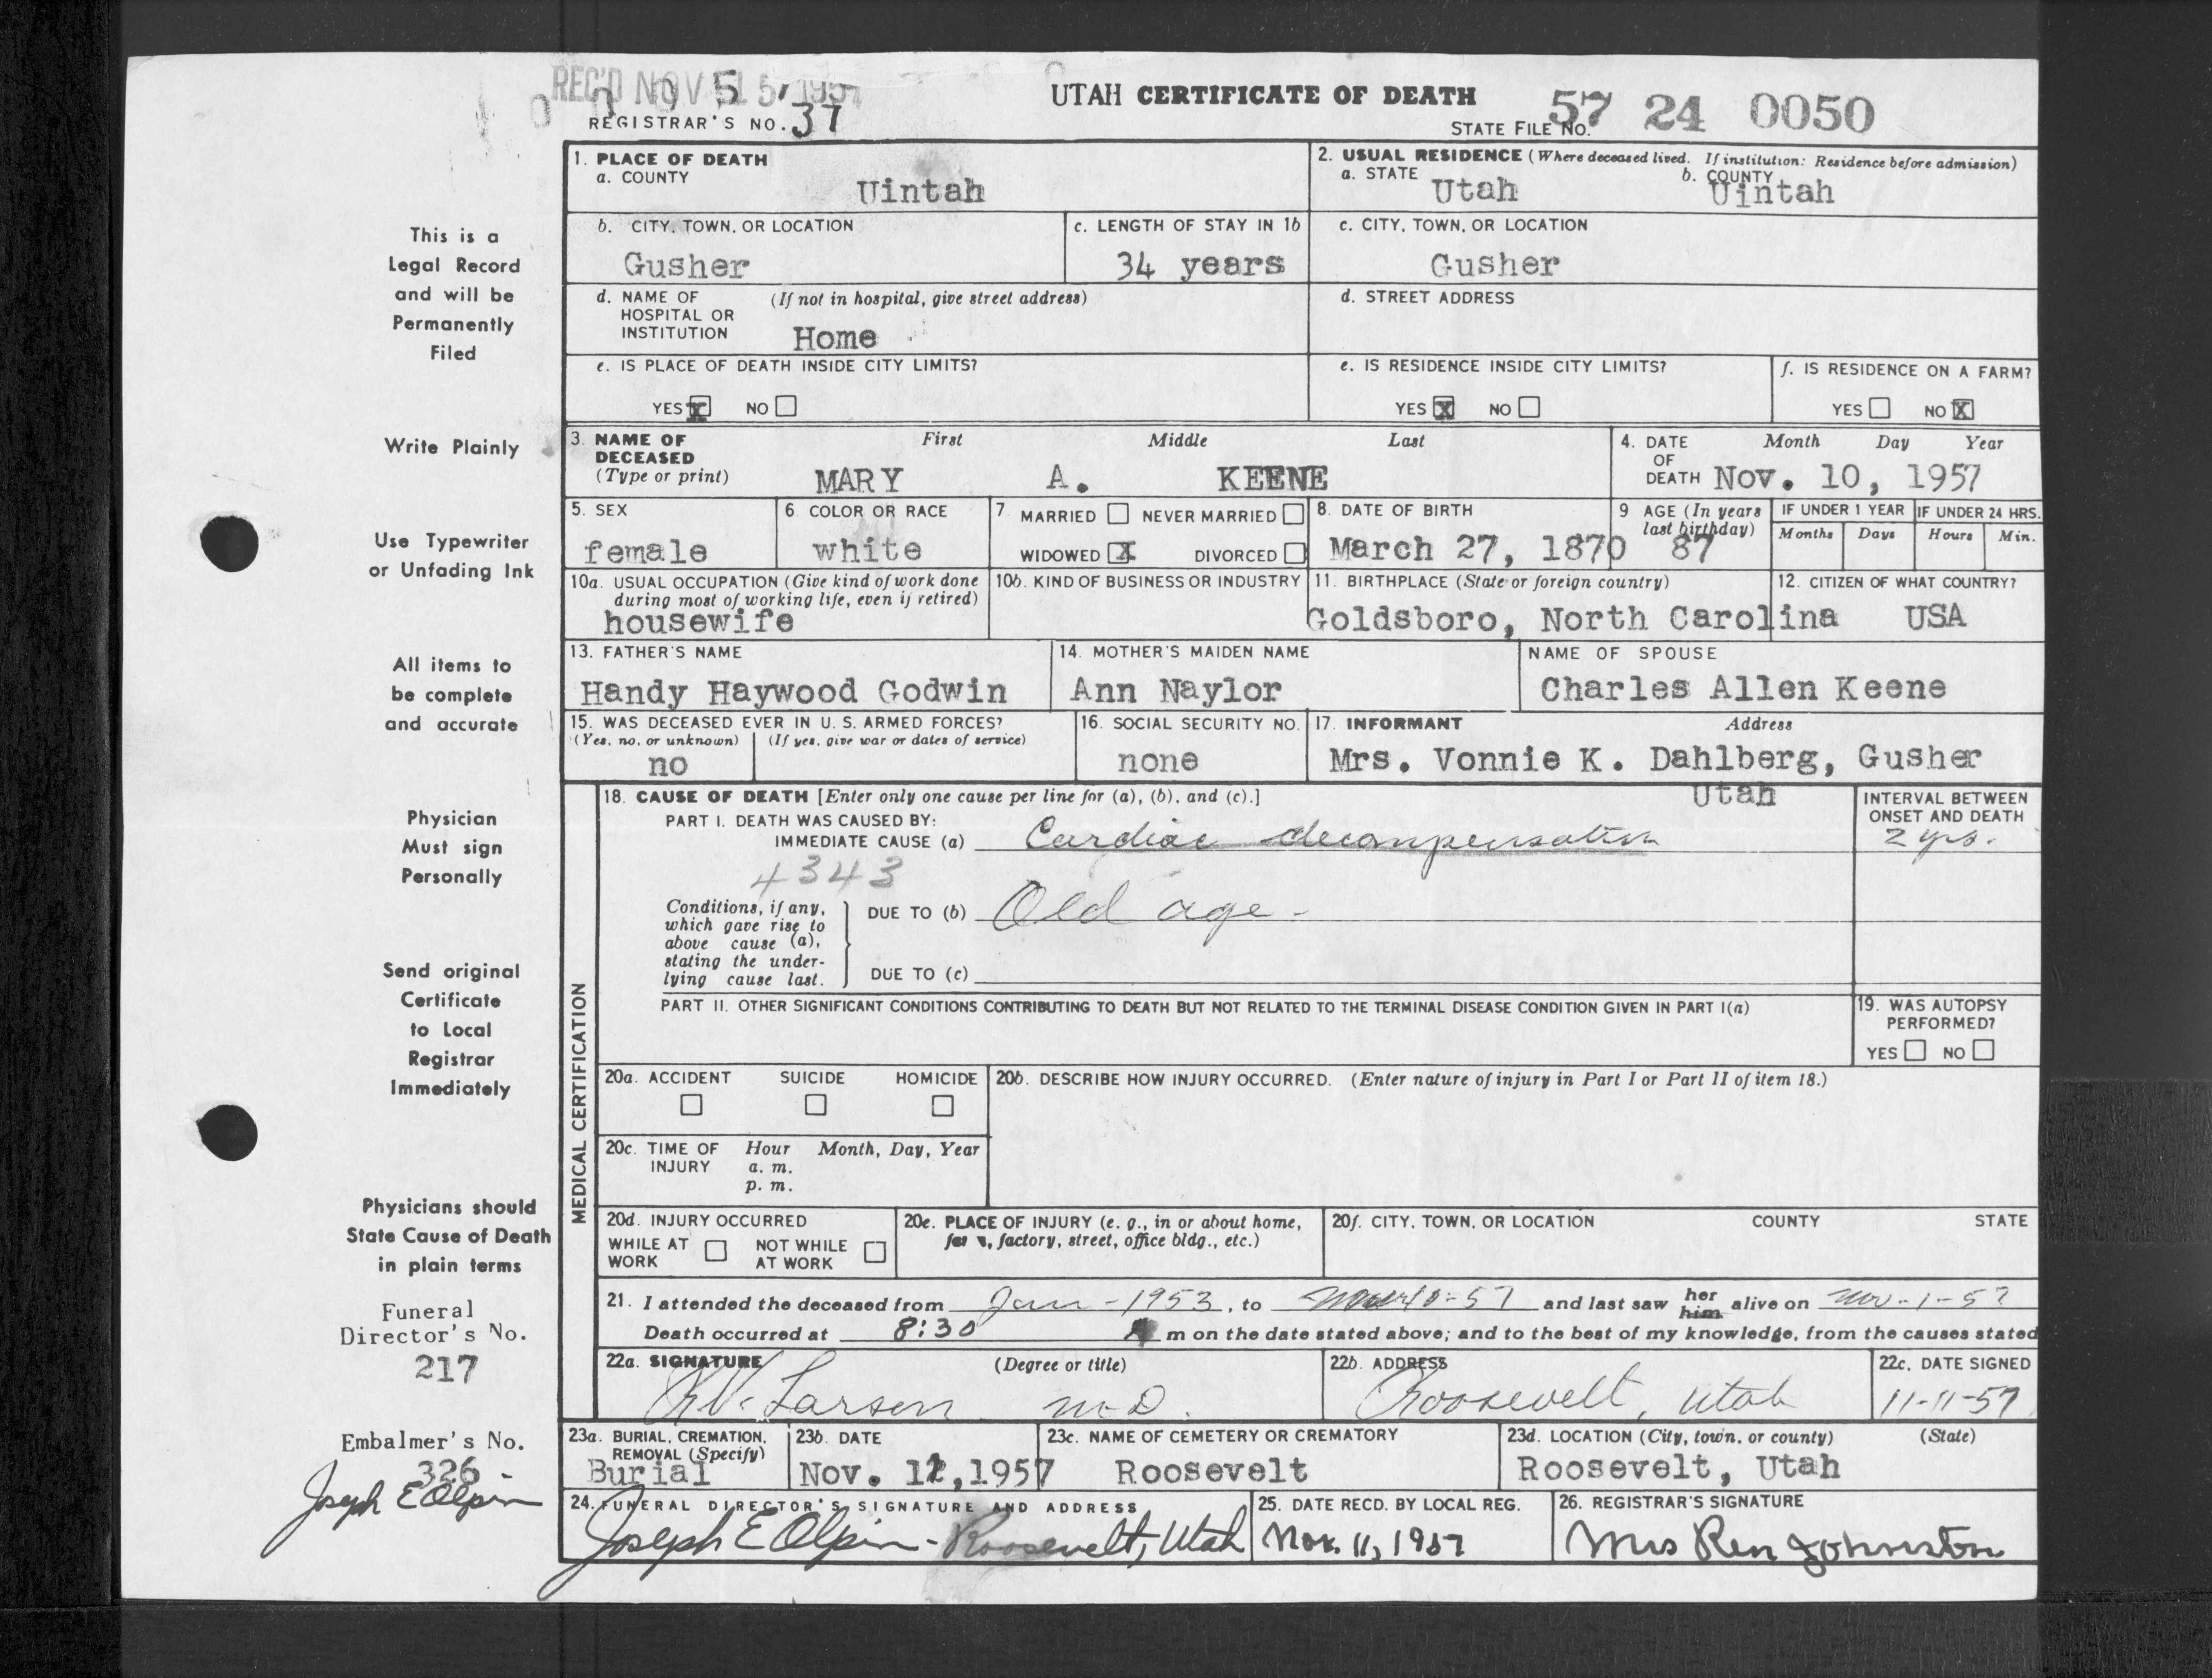 REC'D NOV 15 1957
REGISTRAR'S NO. 37
UTAH CERTIFICATE OF DEATH
STATE FILE NO. 57 24 0050
This is a
Legal Record
and will be
Permanently
Filed
Write Plainly
Use Typewriter
or Unfading Ink
All items to
be complete
and accurate
Physician
Must sign
Personally
Send original
Certificate
to Local
Registrar
Immediately
Physicians should
State Cause of Death
in plain terms
Funeral
Director's No.
217
Embalmer's No.
326
Joseph E Olpin
1. PLACE OF DEATH
a. COUNTY
Uintah
2. USUAL RESIDENCE (Where deceased lived. If institution: Residence before admission)
a. STATE Utah b. COUNTY Uintah
b. CITY, TOWN, OR LOCATION
Gusher
c. LENGTH OF STAY IN 1b
34 years
c. CITY, TOWN, OR LOCATION
Gusher
d. NAME OF HOSPITAL OR INSTITUTION (If not in hospital, give street address)
Home
d. STREET ADDRESS
e. IS PLACE OF DEATH INSIDE CITY LIMITS?
YES X NO
e. IS RESIDENCE INSIDE CITY LIMITS?
YES X NO
f. IS RESIDENCE ON A FARM?
YES NO X
3. NAME OF DECEASED (Type or print)
First Middle Last
MARY A. KEENE
4. DATE OF DEATH Month Day Year
Nov. 10, 1957
5. SEX
female
6. COLOR OR RACE
white
7. MARRIED NEVER MARRIED
WIDOWED X DIVORCED
8. DATE OF BIRTH
March 27, 1870
9 AGE (In years last birthday)
87
IF UNDER 1 YEAR
Months Days
IF UNDER 24 HRS.
Hours Min.
10a. USUAL OCCUPATION (Give kind of work done during most of working life, even if retired)
housewife
10b. KIND OF BUSINESS OR INDUSTRY
11. BIRTHPLACE (State or foreign country)
Goldsboro, North Carolina
12. CITIZEN OF WHAT COUNTRY?
USA
13. FATHER'S NAME
Handy Haywood Godwin
14. MOTHER'S MAIDEN NAME
Ann Naylor
NAME OF SPOUSE
Charles Allen Keene
15. WAS DECEASED EVER IN U. S. ARMED FORCES?
(Yes, no, or unknown) (If yes, give war or dates of service)
no
16. SOCIAL SECURITY NO.
none
17. INFORMANT Address
Mrs. Vonnie K. Dahlberg, Gusher
Utah
MEDICAL CERTIFICATION
18. CAUSE OF DEATH [Enter only one cause per line for (a), (b), and (c).]
PART I. DEATH WAS CAUSED BY:
IMMEDIATE CAUSE (a) Cardiac decompensation
INTERVAL BETWEEN ONSET AND DEATH
2 yrs.
4343
Conditions, if any, which gave rise to above cause (a), stating the underlying cause last.
DUE TO (b) Old age -
DUE TO (c)
PART II. OTHER SIGNIFICANT CONDITIONS CONTRIBUTING TO DEATH BUT NOT RELATED TO THE TERMINAL DISEASE CONDITION GIVEN IN PART I(a)
19. WAS AUTOPSY PERFORMED?
YES NO
20a. ACCIDENT SUICIDE HOMICIDE
20b. DESCRIBE HOW INJURY OCCURRED. (Enter nature of injury in Part I or Part II of item 18.)
20c. TIME OF INJURY Hour Month, Day, Year
a. m.
p. m.
20d. INJURY OCCURRED
WHILE AT WORK NOT WHILE AT WORK
20e. PLACE OF INJURY (e. g., in or about home, factory, street, office bldg., etc.)
20f. CITY, TOWN, OR LOCATION COUNTY STATE
21. I attended the deceased from Jan - 1953, to Nov 10-57 and last saw her him alive on Nov - 1 - 57
Death occurred at 8:30 A m on the date stated above; and to the best of my knowledge, from the causes stated
22a. SIGNATURE (Degree or title)
Larsen M.D.
22b. ADDRESS
Roosevelt, Utah
22c. DATE SIGNED
11-11-57
23a. BURIAL, CREMATION, REMOVAL (Specify)
Burial
23b. DATE
Nov. 12, 1957
23c. NAME OF CEMETERY OR CREMATORY
Roosevelt
23d. LOCATION (City, town, or county) (State)
Roosevelt, Utah
24. FUNERAL DIRECTOR'S SIGNATURE AND ADDRESS
Joseph E Olpin - Roosevelt, Utah
25. DATE RECD. BY LOCAL REG.
Nov. 11, 1957
26. REGISTRAR'S SIGNATURE
Mrs Ren Johnston